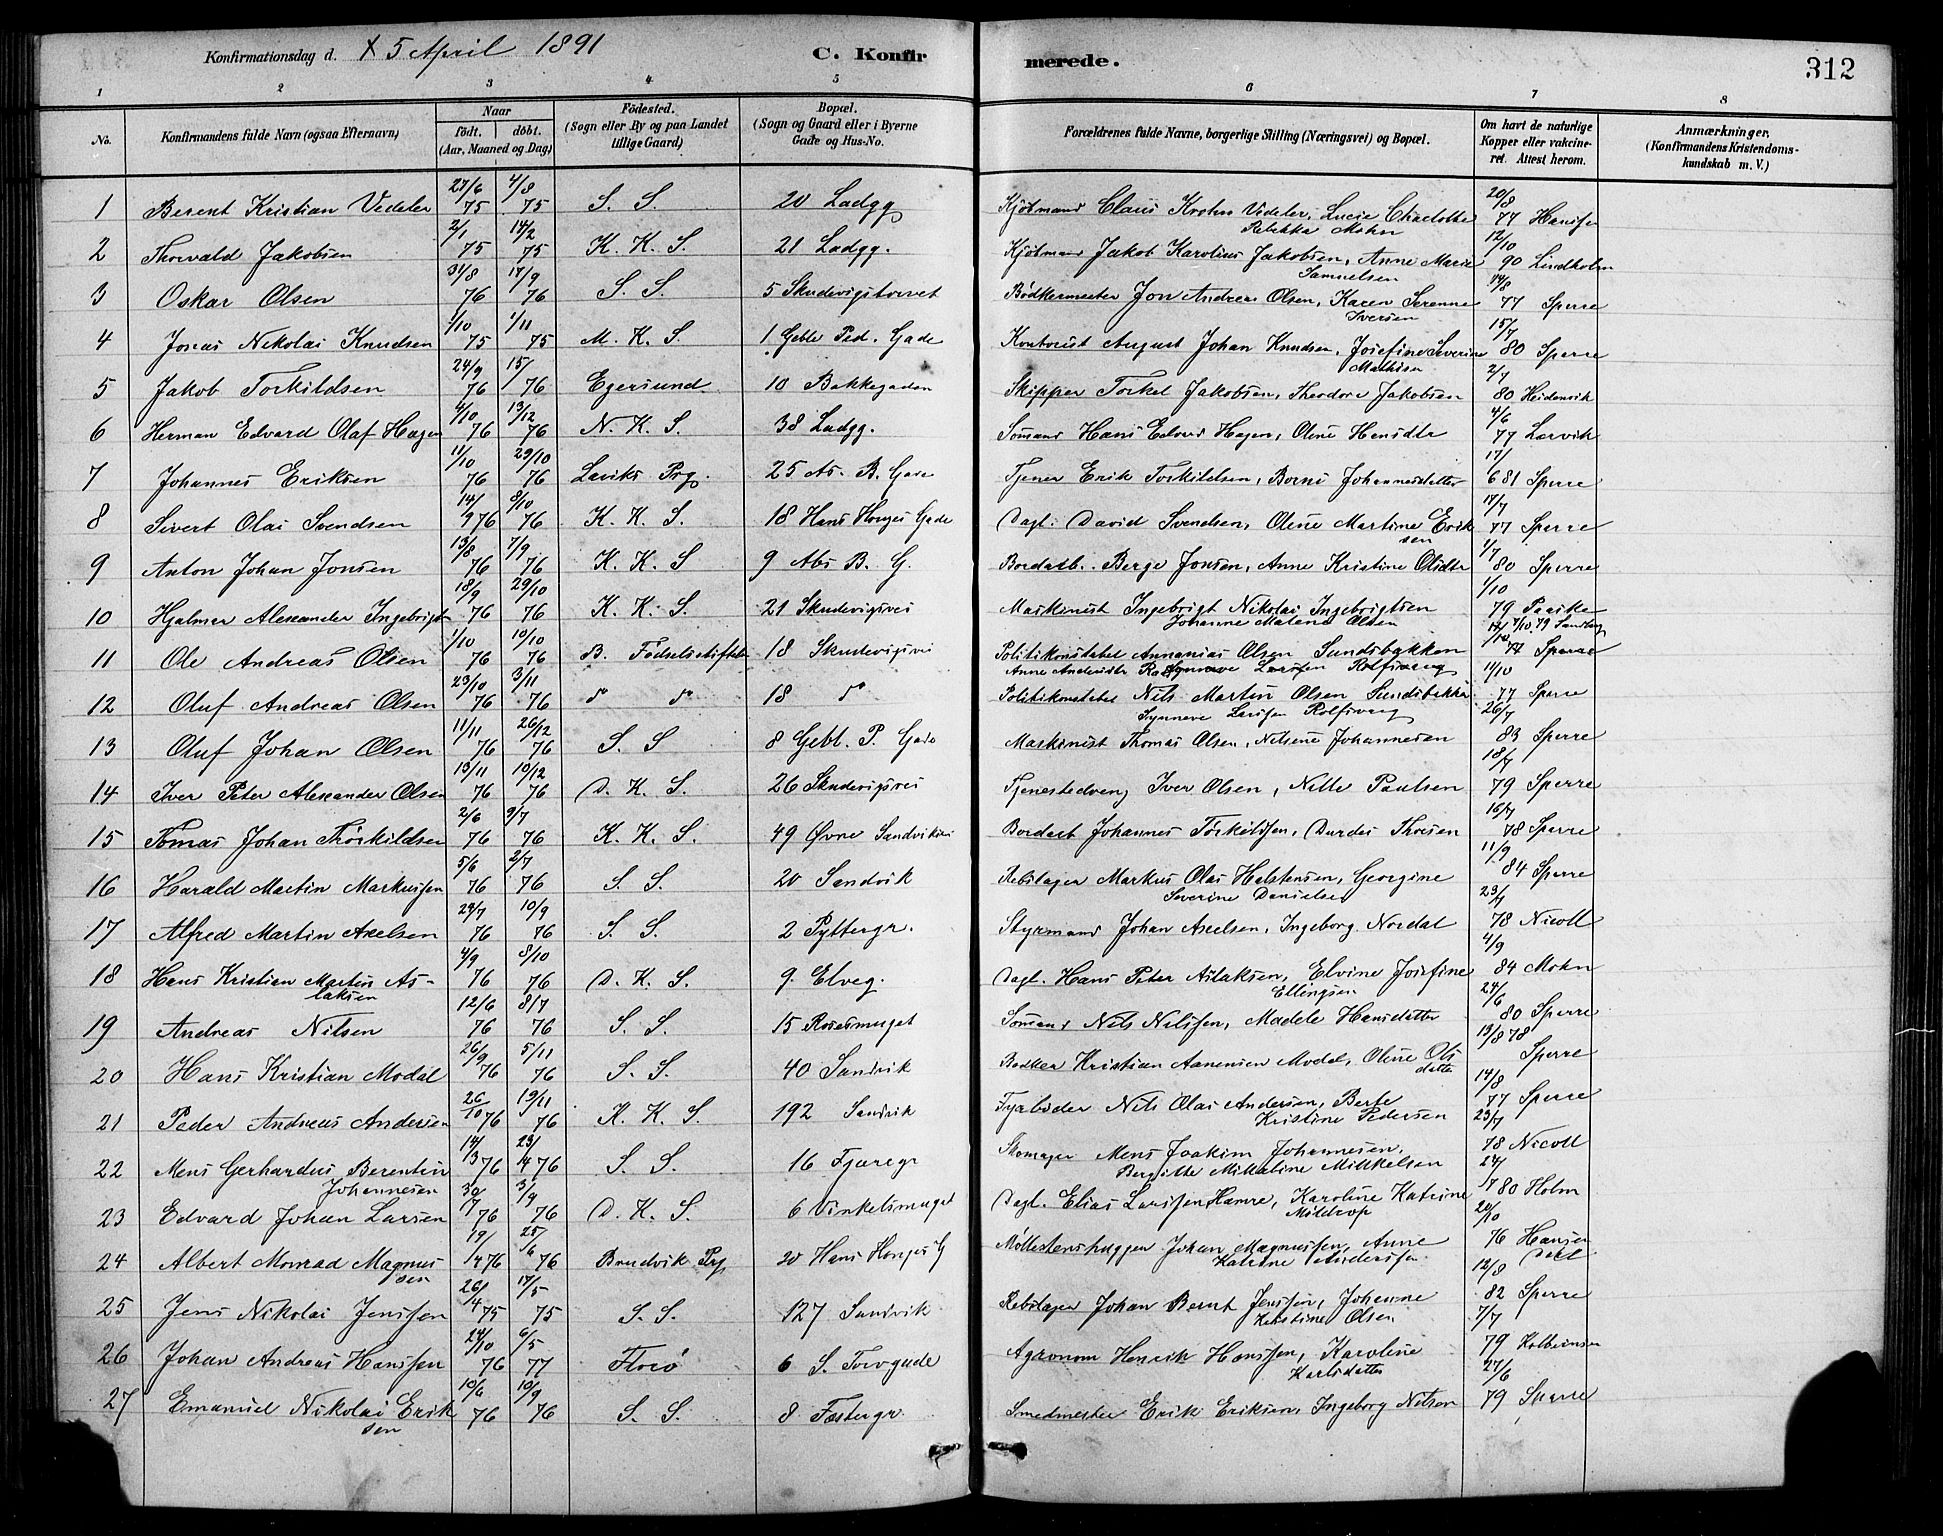 Konfirmationsdag d. X 5 April 1891 C. Konfirmerede. 312
1 2 3 4 5 6 7 8
No. Konfirmandens fulde Navn (ogsaa Efternavn) Naar födt. döbt. (Aar, Maaned og Dag) Födested. (Sogn eller By og paa Landet tillige Gaard) Bopæl. (Sogn og Gaard eller i Byerne Gade og Hus-No. Forældrenes fulde Navne, borgerlige Stilling (Næringsvei) og Bopæl. Om havt de naturlige Kopper eller vakcineret. Attest herom. Anmærkninger, (Konfirmandens Kristendomskundskab m. V.)
1 Berent Kristian Vedeler 27/6 75 4/8 75 S. S. 20 Ladgg Kjöbmand Claus Krohn Vedeler, Lucie Charlotte Rebekka Mohn 20/8 77 Hansen
2 Thorvald Jakobsen 2/1 75 14/2 75 K. K. S. 21 Ladgg. Kjöbmand Jakob Karolius Jakobsen, Anne Marie Samuelsen 12/10 90 Lindholm
3 Oskar Olsen 31/8 76 17/9 76 S. S. 5 Skudevigstorvet Bödkermester Jon Andreas Olsen, Karen Serenne Iversen 14/8 77 Sperre
4 Jonas Nikolai Knudsen 1/10 75 1/11 75 M. K. S. 1 Geble Ped. Gade Kontorist August Johan Knudsen, Josefine Severine Mathisen 15/7 80 Sperre
5 Jakob Torkildsen 24/9 76 15/ 76 Egersund 10 Bakkegaden Skipper Torkel Jakobsen, Theodore Jakobsen 2/7 80 Heidenvik
6 Herman Edvard Olaf Hagen 4/10 76 13/12 76 N. K. S. 38 Ladgg. Sömand Hans Edvard Hagen, Oline Hansdtr 4/6 77 Larvik
7 Johannes Eriksen 11/10 76 29/10 76 Laviks Prg. 25 As. B. Gade Tjener Erik Torkildsen, Borni Johannesdatter 17/6 81 Sperre
8 Sivert Olai Svendsen 14/9 76 8/10 76 K. K. S. 18 Hans Hauges Gade Dagl. David Svendsen, Oline Martine Eriksen 17/7 77 Sperre
9 Anton Johan Jonsen 13/8 76 7/9 76 K. K. S 9 Abs B. G. Bordarb. Berge Jonsen, Anne Kristine Olsdtr 1/7 80 Sperre
10 Hjalmar Alexander Ingebrigts 18/9 76 29/10 76 K. K. S. 21 Skudevigsvei Maskinist Ingebrigt Nikolai Ingebrigtsen Johanne Malene Olsen 1/10 79 Paaske
11 Ole Andreas Olsen 1/10 76 10/10 76 B. Fødselsstiftelse 18 Skudevigsvei Politikonstabel Annanias Olsen Sundsbakken Anne Andersdtr 7/10 79 Sandberg Sperre
12 Oluf Andreas Olsen 23/10 76 3/11 76 do do 18 do Politikonstabel Nils Martin Olsen Sundsbakke Synneve Larsen Rolfsvaag 11/10 77 Sperre
13 Oluf Johan Olsen 11/11 76 26/12 76 S. S 8 Gebl. P. Gade Maskinist Thomas Olsen, Nilsine Johannesen 26/7 83 Sperre
14 Iver Peter Alexander Olsen 13/11 76 10/12 76 D. K. S. 26 Skudevigsvei Tjenestedreng Iver Olsen, Nille Paulsen 18/7 79 Sperre
15 Tomas Johan Thörkildsen 2/6 76 9/7 76 K. K. S. 49 Øvre Sandviksvei Bordarb Johannes Törkildsen, Durdei Thoesen 16/7 78 Sperre
16 Harald Martin Markussen 5/6 76 2/7 76 S. S. 20 Sandvik Rebslager Markus Olai Halstensen, Georgine Severine Danielsen 11/9 84 Sperre
17 Alfred Martin Axelsen 29/7 76 10/9 76 S. S. 2 Pyttergr. Styrmand Johan Axelsen, Ingeborg Nordal 23/7 78 Nicoll
18 Hans Kristian Martin Aslaksen 4/9 76 8/10 76 D. K. S. 9. Elveg. Dagl. Hans Peter Aslaksen, Elvine Josefine Ellingsen 4/9 84 Mohn
19 Andreas Nilsen 12/6 76 8/7 76 S. S. 15 Rosesmuget Sömand Nils Nilssen, Madele Hansdatter 24/6 80 Sperre
20 Hans Kristian Modal 26/9 76 5/11 76 S. S. 40 Sandvik Bödker Kristian Aanensen Modal, Oline Olsdatter 13/8 78 Sperre
21 Peder Andreas Andersen 26/10 76 19/11 76 K. K. S. 192 Sandvik Nils Olai Andersen, Berte Kristine Pedersen 14/8 77 Sperre
22 Mens Gerhardus Berentin Johannesen 14/3 76 23/4 76 S. S. 16 Fjæregr Skomager Mens Joakim Johannesen, Bergitte Mikaline Mikkelsen 23/7 78 Nicoll
23 Edvard Johan Larsen 30/7 76 3/9 76 D. K. S. 6 Vinkelsmuget Dagl. Elias Larssen Hamre, Karoline Katrine Möltrop 24/7 80 Holm
24 Albert Monrad Magnussen 19/4 76 25/6 76 Bruvik Prg 20 Hans Hauges G Møllestenshugger Johan Magnussen, Anne Katrine Anderssen 20/10 76 Hansen
25 Jens Nikolai Jenssen 26/4 75 17/5 75 S. S. 127 Sandvik Rebslager Johan Bernt Jenssen, Johanne Kristine Olsen 12/8 82 Sperre
26 Johan Andreas Hanssen 24/10 76 6/5 77 Florö 6 S. Torvgade Agronom Henrik Hanssen, Karoline Karlsdatter 7/7 79 Kolbeinsen
27 Emanuel Nikolai Eriksen 10/6 76 10/9 76 S. S. 8 Fæstergr. Smedmester Erik Eriksen, Ingeborg Nilsen 27/6 79 Sperre